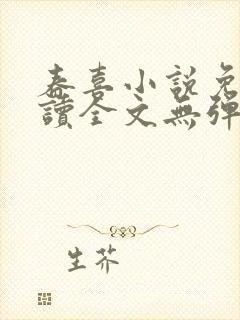 春喜小說免
讀全文無彈
生芥